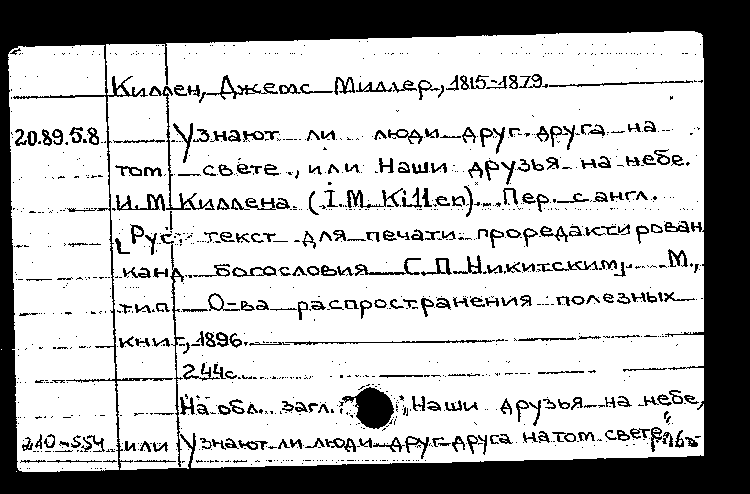 Киллен, Джемс Миллер, 1815-1879.
20.89.5.8 Узнают ли люди друг друга на
том свете, или Наши друзья на небе.
И.М. Киллена (I.M. Killen). Пер. с англ.
[Рус. текст для печати проредактирован
канд. богословия С.П. Никитским]. М.,
тип. О-ва распространения полезных
книг, 1896.
244с.
На обл. загл.: "Наши друзья на небе,
210-554 или Узнают ли люди друг друга на том свете"